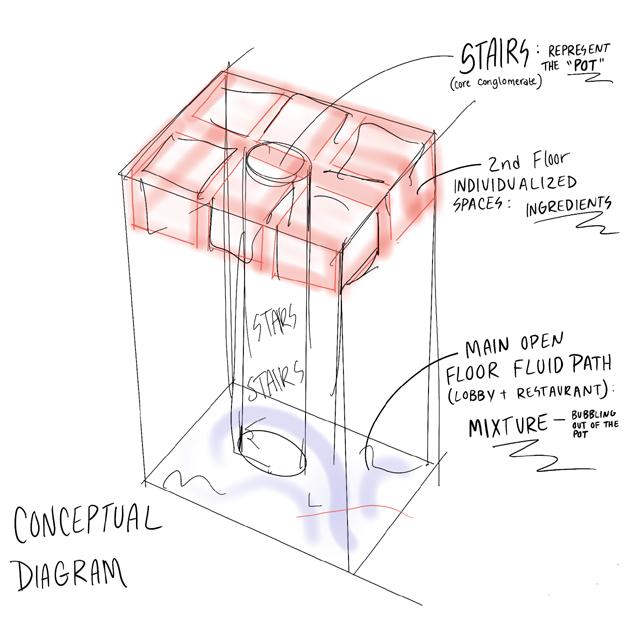 STAIRS : REPRESENT
THE "POT"
(core conglomerate)
2nd Floor
INDIVIDUALIZED
SPACES : INGREDIENTS
STARS
STAIRS
MAIN OPEN
FLOOR FLUID PATH
(LOBBY + RESTAURANT) :
MIXTURE — BUBBLING
OUT OF THE
POT
R
L
CONCEPTUAL
DIAGRAM